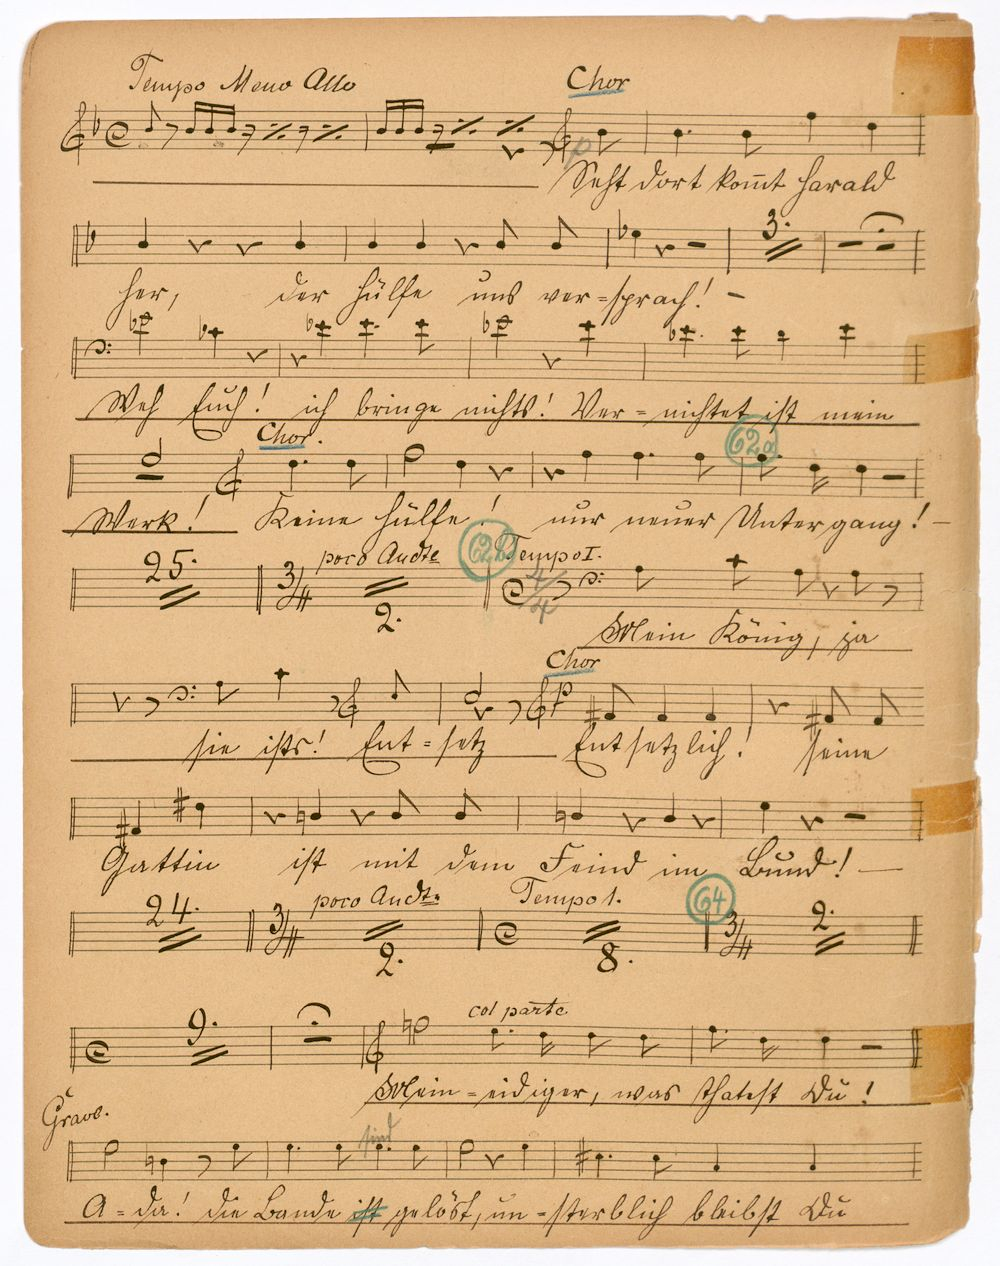 Tempo Meno Allo
Chor
p
Seht dort kom̄t Harald
3.
her, der Hülfe uns ver=sprach! –
Weh Euch! ich bringe nichts! Ver=nichtet ist mein
Chor.
62a
Werk! Keine Hülfe! nur neuer Untergang! –
25. 3/4 poco Andte 2. 62b Tempo I. 4/4
Mein König, ja
Chor
p
sie ists! Ent=setz Entsetzlich! seine
Gattin ist mit dem Feind im Bund! –
24. 3/4 poco Andte 2. Tempo 1. 8. 64 3/4 2.
9. col parte
Mein=eidiger, was thatest Du!
Grave.
sind
A=da! die Bande ist gelöst, un=sterblich bleibst Du